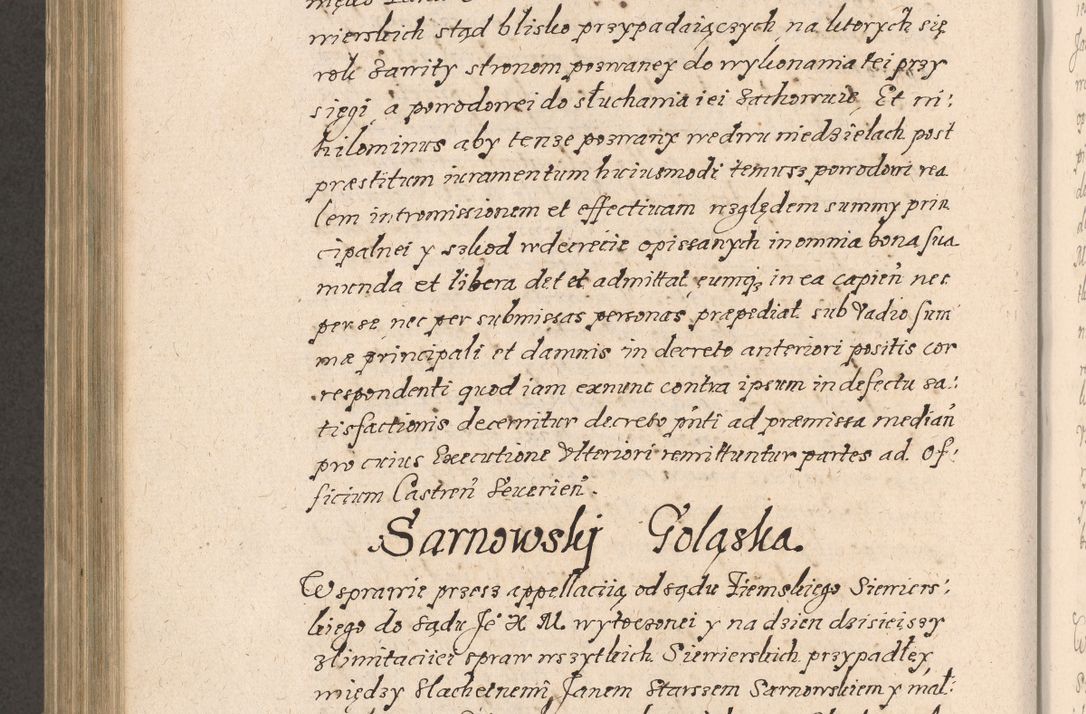 wierskich stąd blisko przypadaiączych na ktorych się
rok zawity stronom pozwaney do wykonania tei przy
sięgi, a powodowei do słuchania iei zachowuie, Et ni:
hilominus aby tenze pozwany wedwu niedzielach post
præstitum iuramentum huiusmodi temusz powodowi rea
lem intromissionem et effectiuam względem summy prin
cipalnei y szkod wdecrecie opissanych in omnia bona sua
munda et libera det et admittat, eumq3 in ea capien̄ nec
per se nec per submissas personas præpediat sub vadio sum
mæ principali et damnis in decreto anteriori positis cor
respondenti quod iam exnunc contra ipsum in defectu sa:
tisfactionis decernitur decreto pn̄ti ad præmissa median̄
pro cuius Executione Vlteriori remittuntur partes ad Of:
ficium Castren̄ Seuerien̄.
Sarnowskj Goląska.
W sprawie przesz appellaciią od sądu Ziemskiego Siewiers:
kiego do sądu Je° X M. wytoczonei y na dzien dzisieiszy
z limitaciiei spraw wszytkich Siewierskich przypadłey
między Slachetnemi Janem Starszem Sarnowskiem y mał: